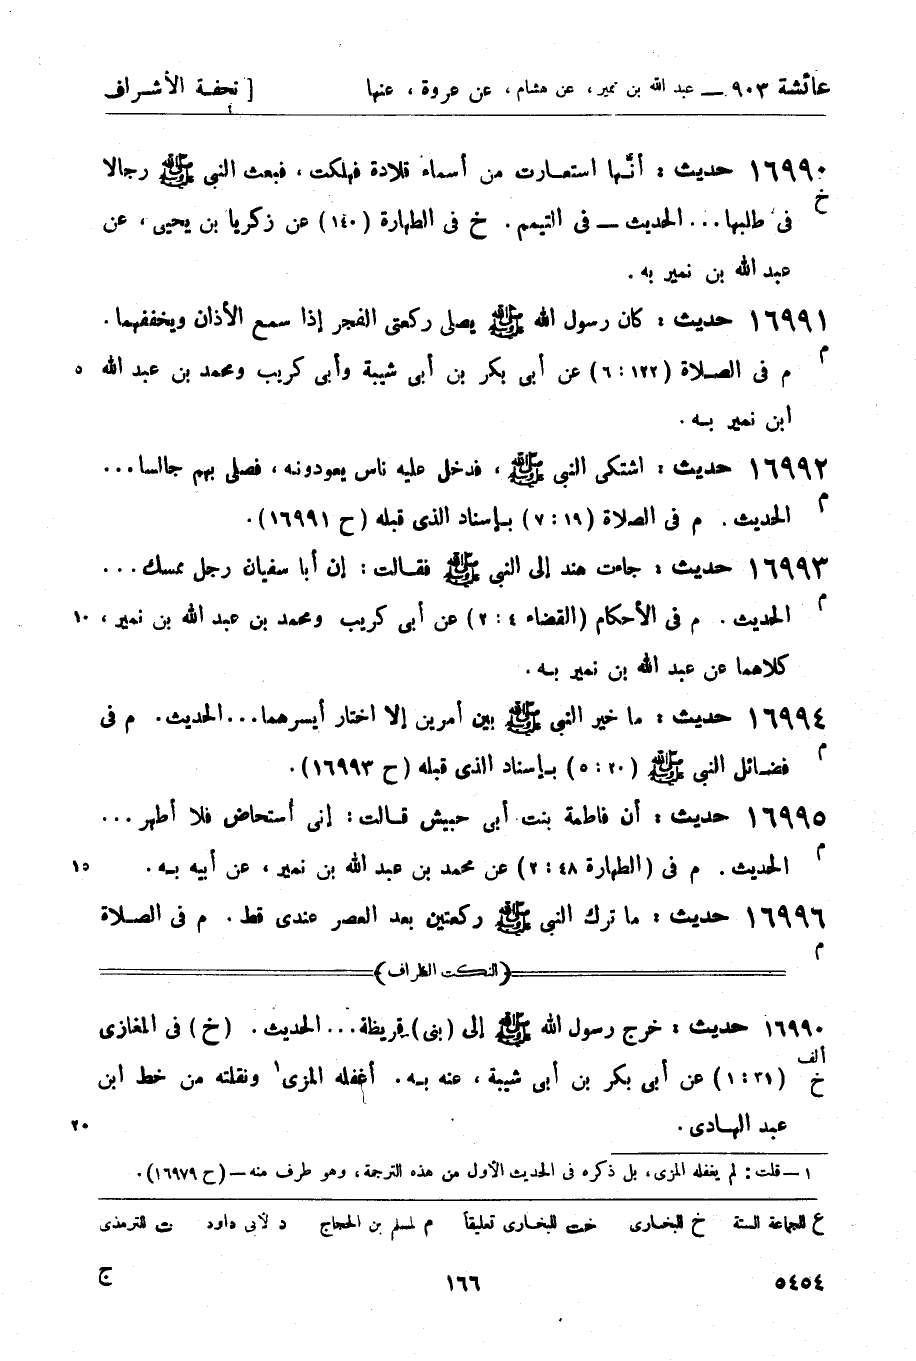 عائشة ٩٠٣ — عبد الله بن نمير، عن هشام، عن عروة، عنها [ تحفة الأشراف
١٦٩٩٠ حديث : أنّها استعارت من أسماء قلادة فهلكت، فبعث النبي ﷺ رجالا
خ
فى طلبها... الحديث — فى التيمم. خ فى الطهارة (١٤٠) عن زكريا بن يحيى، عن
عبد الله بن نمير به.
١٦٩٩١ حديث : كان رسول الله ﷺ يصلى ركعتى الفجر إذا سمع الأذان ويخففهما.
م
م فى الصلاة (١٢٢ : ٦) عن أبى بكر بن أبى شيبة وأبى كريب ومحمد بن عبد الله ٥
ابن نمير به.
١٦٩٩٢ حديث : اشتكى النبي ﷺ، فدخل عليه ناس يعودونه، فصلى بهم جالسا...
م
الحديث. م فى الصلاة (١٩ : ٧) بإسناد الذى قبله (ح ١٦٩٩١).
١٦٩٩٣ حديث : جاءت هند إلى النبي ﷺ فقالت : إن أبا سفيان رجل ممسك...
م
الحديث. م فى الأحكام (القضاء ٤ : ٢) عن أبى كريب ومحمد بن عبد الله بن نمير، ١٠
كلاهما عن عبد الله بن نمير به.
١٦٩٩٤ حديث : ما خير النبي ﷺ بين أمرين إلا اختار أيسرهما... الحديث. م فى
م
فضائل النبي ﷺ (٢٠ : ٥) بإسناد الذى قبله (ح ١٦٩٩٣).
١٦٩٩٥ حديث : أن فاطمة بنت أبى حبيش قالت : إنى أستحاض فلا أطهر...
م
الحديث. م فى (الطهارة ٤٨ : ٢) عن محمد بن عبد الله بن نمير، عن أبيه به. ١٥
١٦٩٩٦ حديث : ما ترك النبي ﷺ ركعتين بعد العصر عندى قط. م فى الصلاة
م
(النكت الظراف)
١٦٩٩٠ حديث : خرج رسول الله ﷺ إلى (بنى) قريظة... الحديث. (خ) فى المغازى
ألف
خ
(٣١ : ١) عن أبى بكر بن أبى شيبة، عنه به. أغفله المزى١ ونقلته من خط ابن
عبد الهادى. ٢٠
١ — قلت : لم يغفله المزى، بل ذكره فى الحديث الأول من هذه الترجمة، وهو طرف منه — (ح ١٦٩٧٩).
ع للجماعة الستة خ للبخارى خت للبخارى تعليقاً م لمسلم بن الحجاج د لأبى داود ت للترمذى
٥٤٥٤ ١٦٦ ج